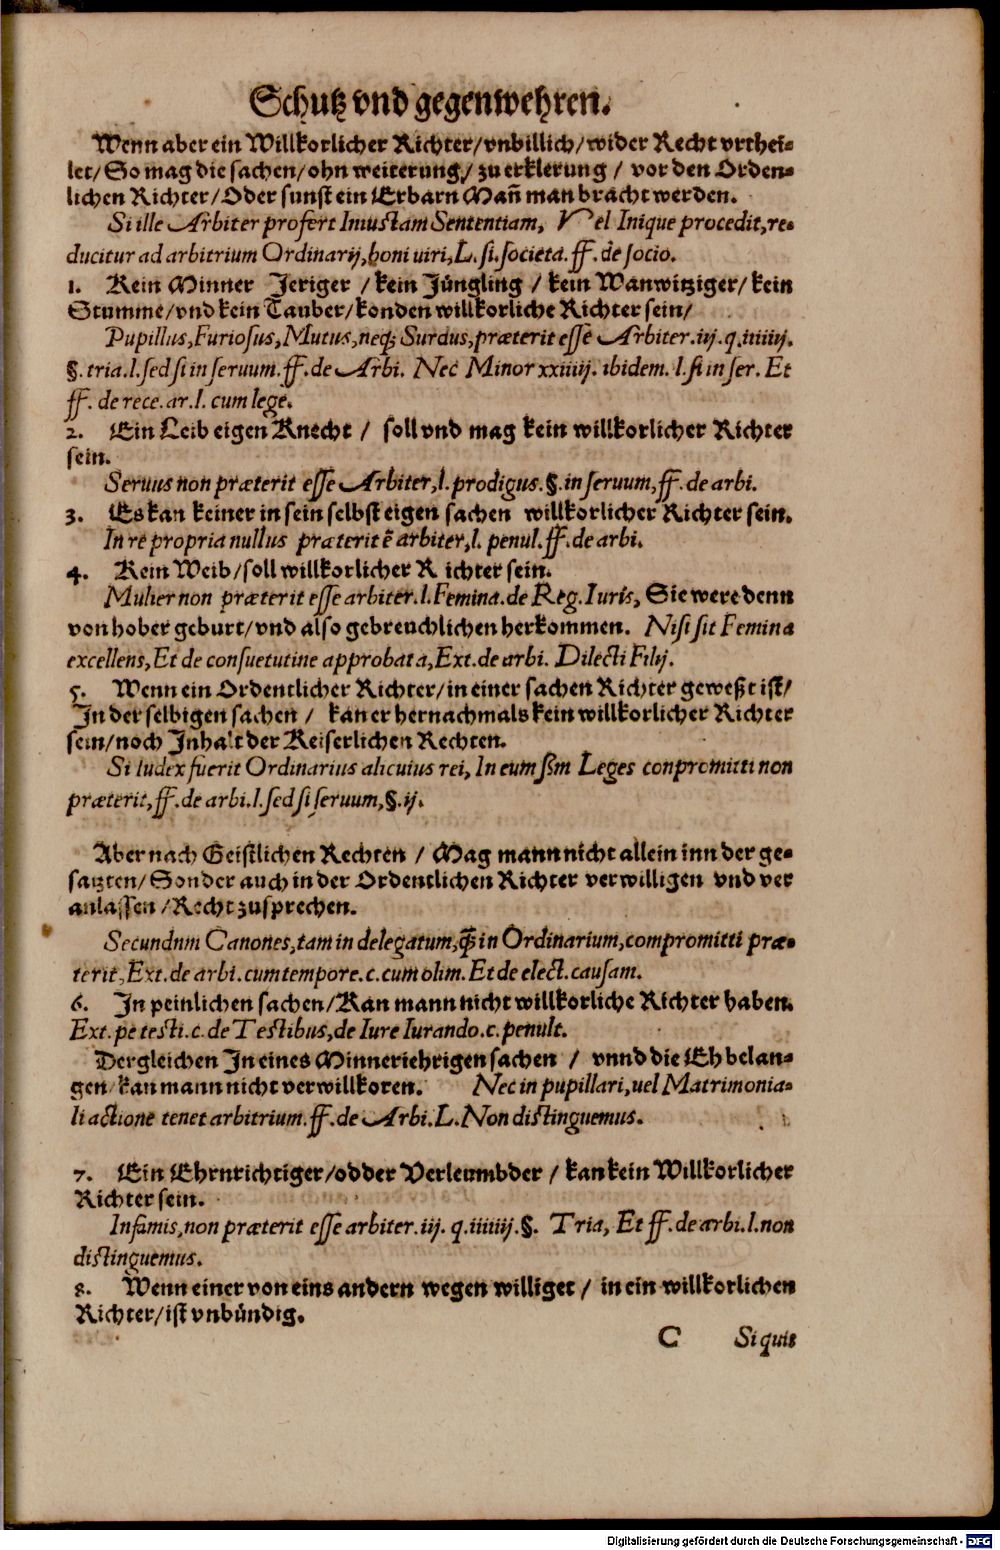 Schutz vnd gegenwehren.
Wenn aber ein Willkorlicher Richter/vnbillich/wider Recht vrthei-
let/So mag die sachen/ohn weiterung/zu erklerung / vor den Orden-
lichen Richter/Oder sunst ein Erbarn Mañ man bracht werden.
Si ille Arbiter profert Iniustam Sententiam, Vel Inique procedit, re-
ducitur ad arbitrium Ordinarij, boni uiri, L. si. societa. ff. de socio.
1. Kein Minner Jeriger / kein Jüngling / kein Wanwitziger/kein
Stumme/vnd kein Tauber/konden willkorliche Richter sein/
Pupillus, Furiosus, Mutus, neq; Surdus, præterit esse Arbiter. iij. q. iiiiiij.
§. tria. l. sed si in seruum. ff. de Arbi. Nec Minor xxiiiij. ibidem. l. si in ser. Et
ff. de rece. ar. l. cum lege.
2. Ein Leib eigen Knecht / soll vnd mag kein willkorlicher Richter
sein.
Seruus non præterit esse Arbiter, l. prodigus. §. in seruum, ff. de arbi.
3. Es kan keiner in sein selbst eigen sachen willkorlicher Richter sein.
In re propria nullus præterit ẽ arbiter, l. penul. ff. de arbi.
4. Kein Weib/soll willkorlicher R ichter sein.
Mulier non præterit esse arbiter. l. Femina. de Reg. Iuris, Sie were denn
von hober geburt/vnd also gebreuchlichen herkommen. Nisi sit Femina
excellens, Et de consuetutine approbata, Ext. de arbi. Dilecti Filij.
5. Wenn ein Ordentlicher Richter/in einer sachen Richter geweßt ist/
In der selbigen sachen / kan er hernachmals kein willkorlicher Richter
sein/noch Inhalt der Keiserlichen Rechten.
Si Iudex fuerit Ordinarius alicuius rei, In eum sm Leges conpromitti non
præterit, ff. de arbi. l. sed si seruum, §. ij.
Aber nach Geistlichen Rechten / Mag mann nicht allein inn der ge-
satzten/Sonder auch in der Ordentlichen Richter verwilligen vnd ver
anlassen/Recht zusprechen.
Secundnm Canones, tam in delegatum, q̃ in Ordinarium, compromitti præ-
terit, Ext. de arbi. cum tempore. c. cum olim. Et de elect. causam.
6. In peinlichen sachen/Kan mann nicht willkorliche Richter haben.
Ext. pe testi. c. de Testibus, de Iure Iurando. c. penult.
Dergleichen In eines Minneriehrigen sachen / vnnd die Eh belan-
gen/kan mann nicht verwillkoren. Nec in pupillari, uel Matrimonia-
li actione tenet arbitrium. ff. de Arbi. L. Non distinguemus.
7. Ein Ehrnrichtiger/odder Verleumbder / kan kein Willkorlicher
Richter sein.
Infamis, non præterit esse arbiter. iij. q. iiiiiij. §. Tria, Et ff. de arbi. l. non
distinguemus.
8. Wenn einer von eins andern wegen williget / in ein willkorlichen
Richter/ist vnbündig.
C Si quis
Digitalisierung gefördert durch die Deutsche Forschungsgemeinschaft - DFG